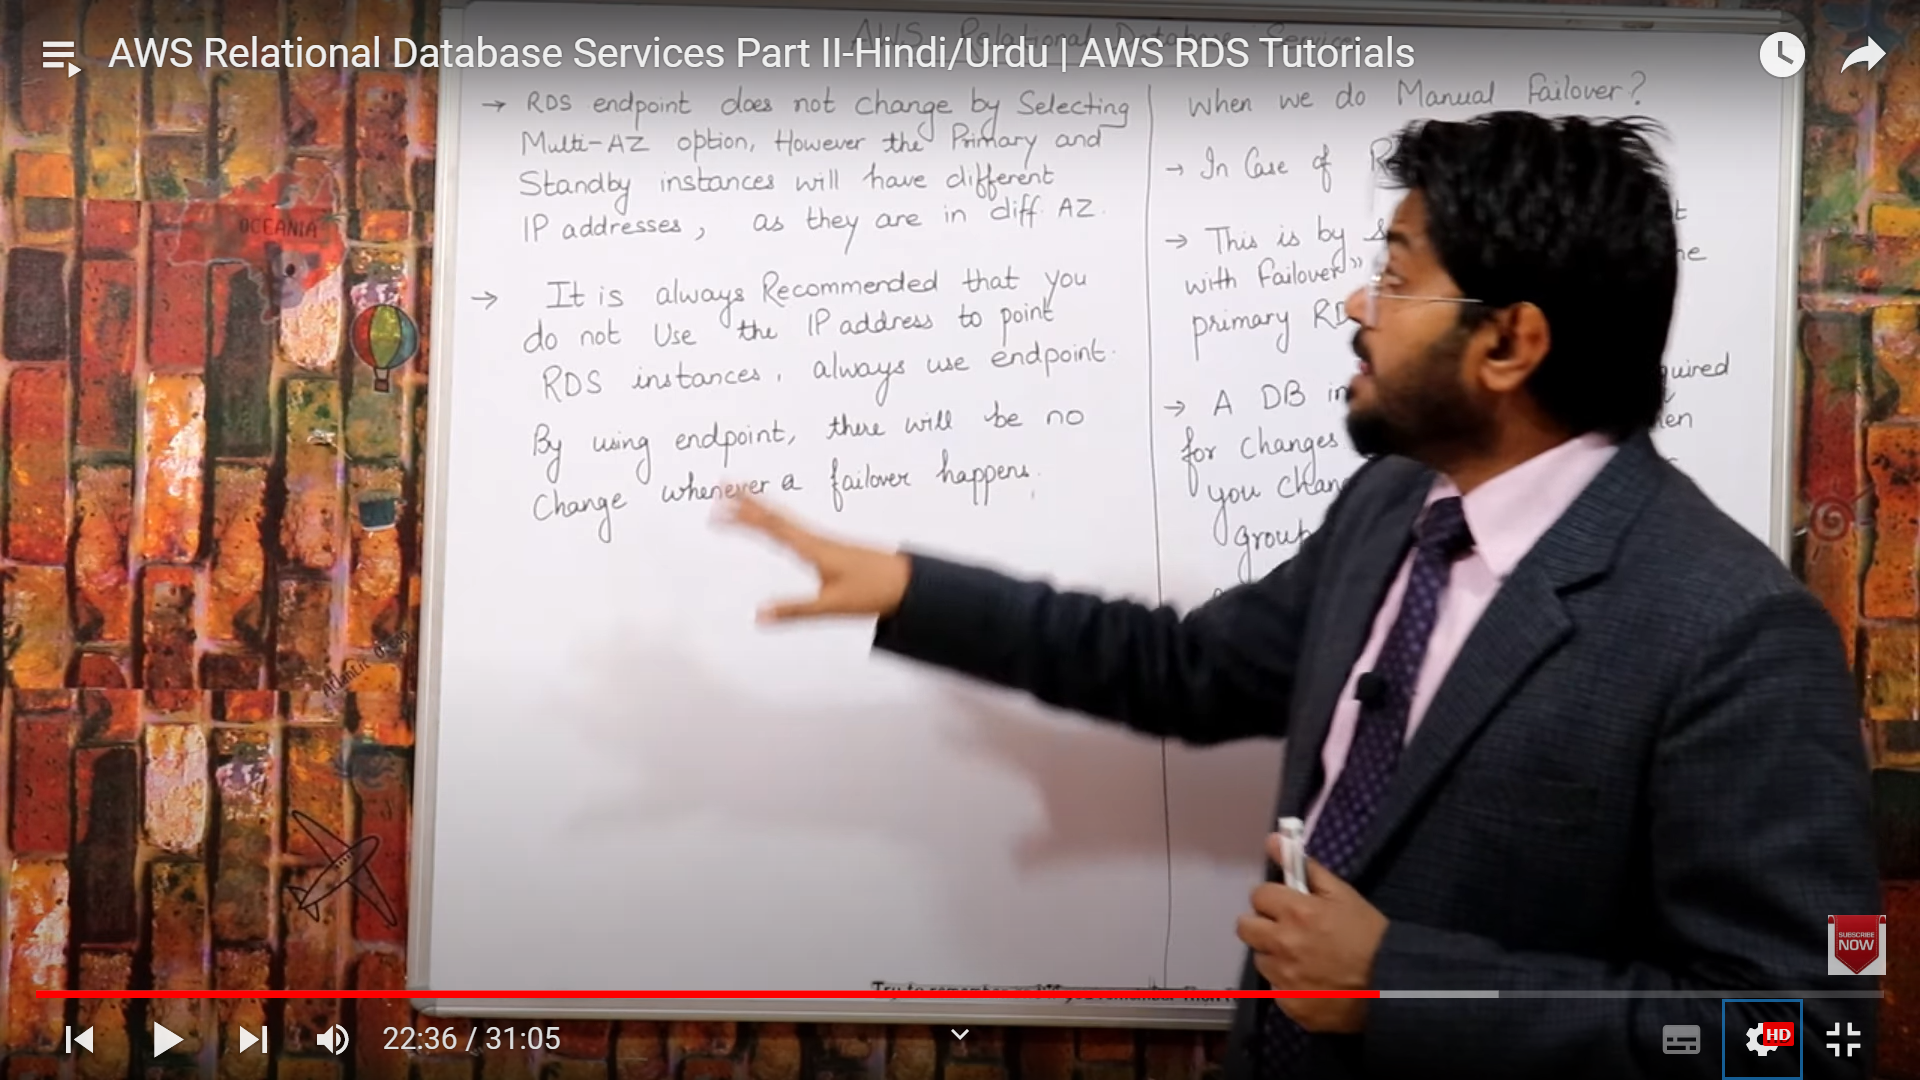 AWS Relational Database Services Part II-Hindi/Urdu | AWS RDS Tutorials
AWS Relational Database Service
→ RDS endpoint does not change by Selecting
Multi-AZ option, However the Primary and
Standby instances will have different
IP addresses, as they are in diff. AZ.
→ It is always Recommended that you
do not Use the IP address to point
RDS instances, always use endpoint.
By using endpoint, there will be no
Change whenever a failover happens.
When we do Manual Failover?
→ In Case of R
→ This is by s
with Failover”
primary RD
→ A DB in quired
for changes
you chan
group
OCEANIA
Atlantic
SUBSCRIBE
NOW
22:36 / 31:05
HD